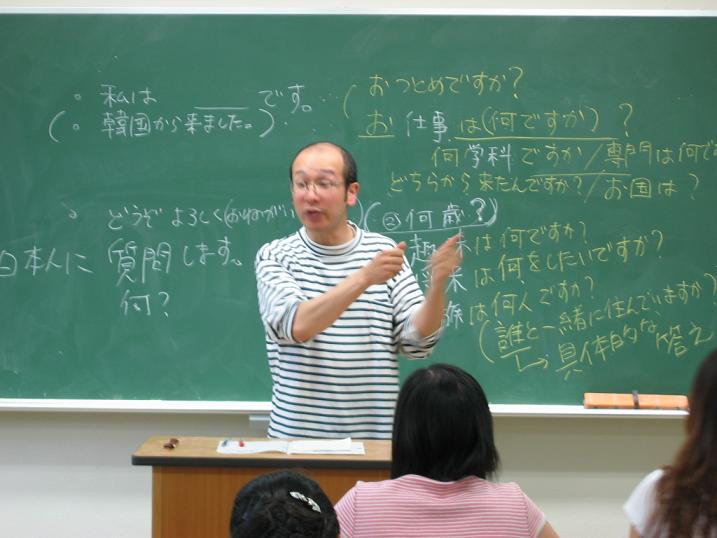 ・私は ___ です。
(・韓国から来ました。)
・どうぞよろしく(おねがい
日本人に 質問します。
何?
(おつとめですか?
お仕事は(何ですか)?
何学科ですか/専門は何で
どちらから来たんですか?/お国は?
(何歳?)
趣味は何ですか?
来は何をしたいですか?
族は何人ですか?
(誰と一緒に住んでいますか?
→具体的な答え